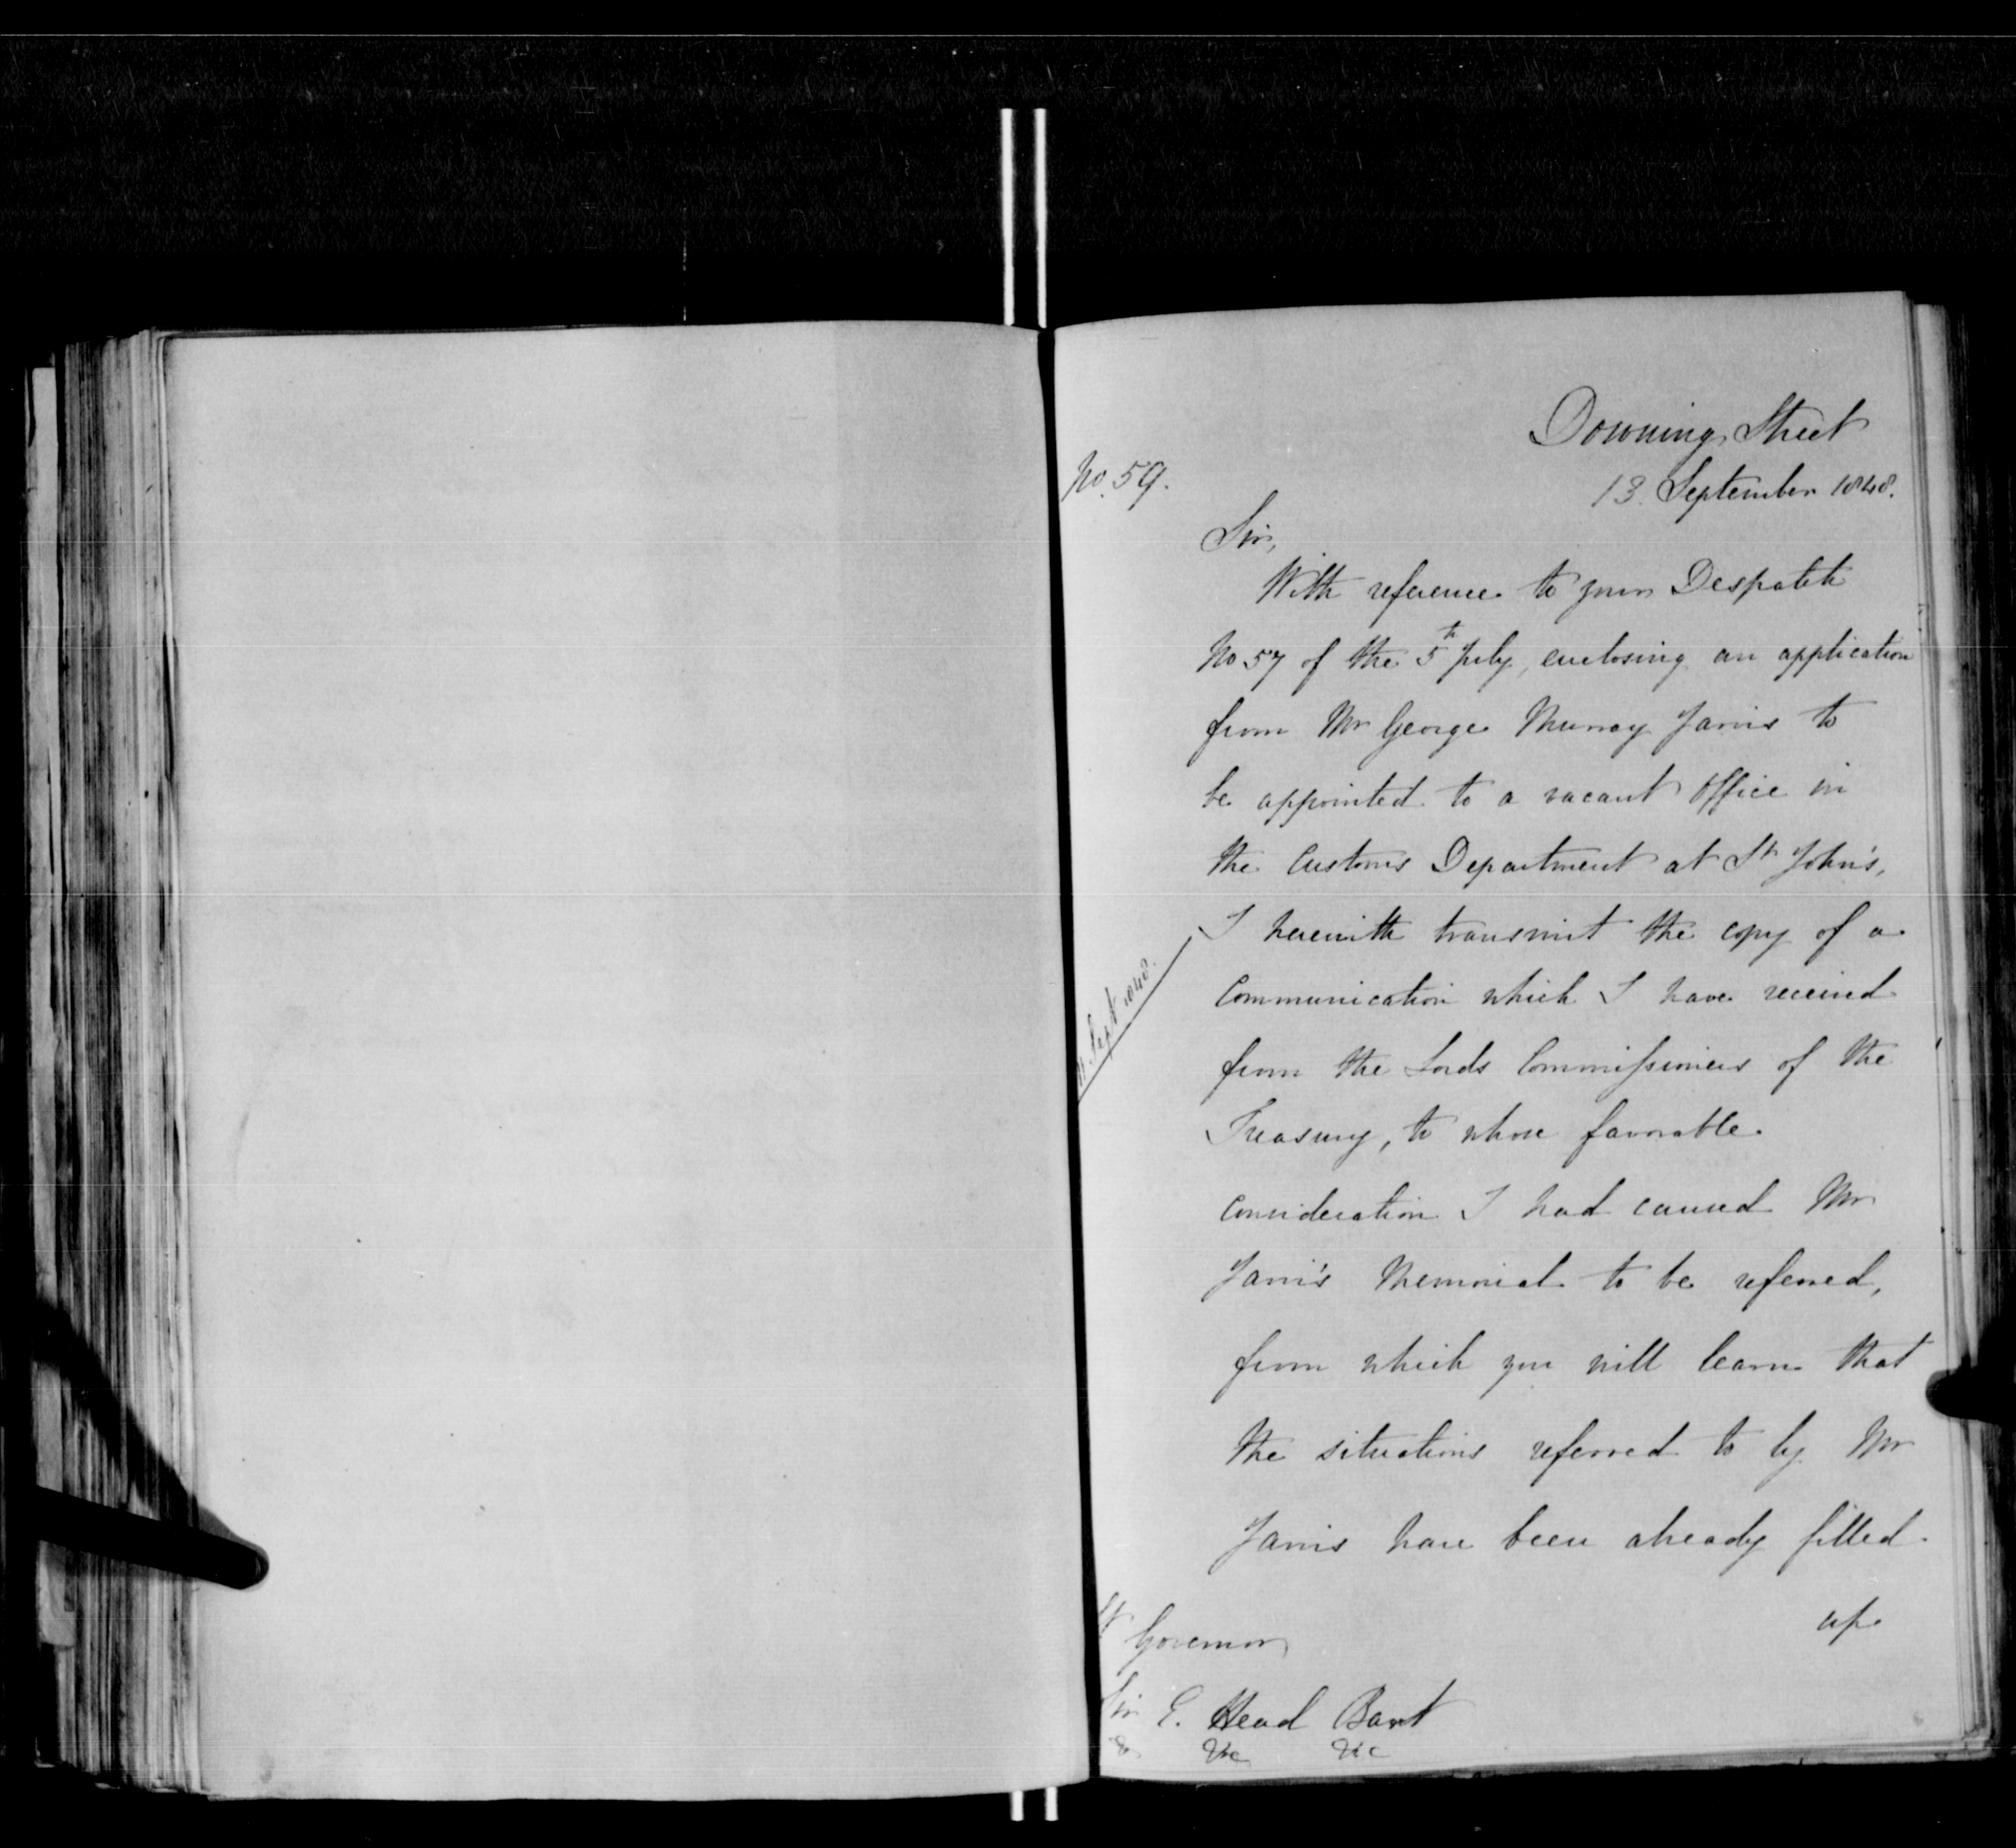 Downing Street
No. 59.
13. September 1848.
Sir,
With reference to your Despatch
No 57 of the 5th July, enclosing an application
from Mr George Murray Jarvis to
be appointed to a vacant Office in
the Customs Department at St John's,
I herewith transmit the copy of a
11 Sept 1848.
Communication which I have received
from the Lords Commissioners of the
Treasury, to whose favorable
consideration I had caused Mr
Jarvi's Memorial to be referred,
from which you will learn that
the situations referred to by Mr
Jarvis have been already filled
up
Lt Governor
Sir E. Head Bart
&c &c &c